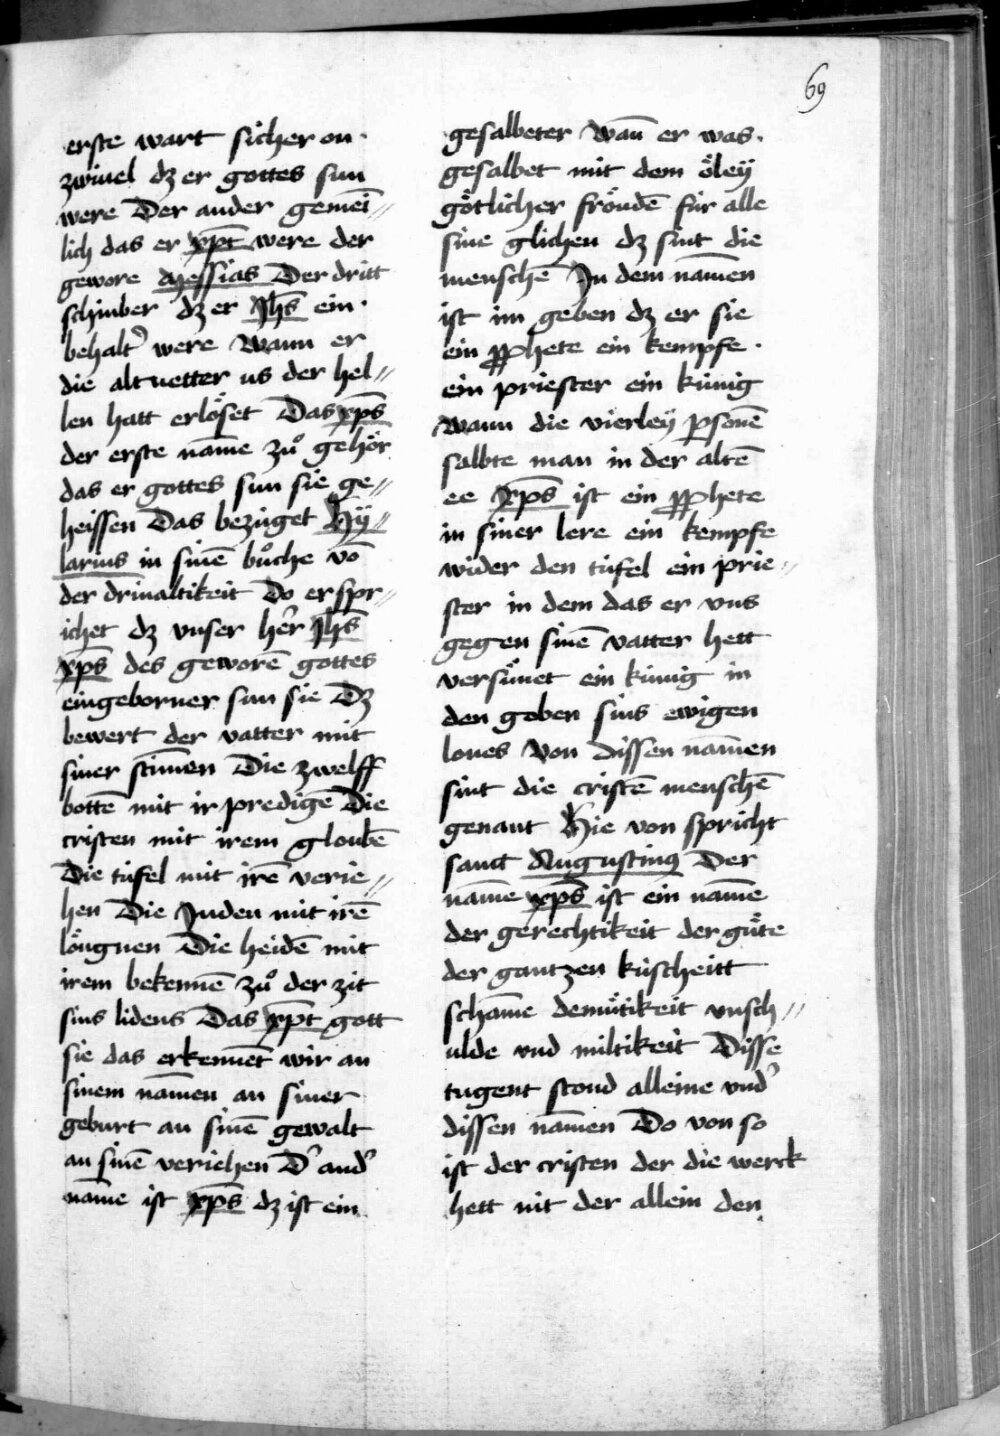 69
erste wart sicher on
zwiuel dz er gottes sun
were Der ander gemei⸗
lich das er xp̄t were der
gewore Messias Der dritt
schinber dz er Jh̄s ein
behalt᾽ were Wann er
die altuetter us der hel⸗
len hatt erlöset Das xp̄s
der erste name zuͦ gehör
das er gottes sun sie ge⸗
heissen Das bezüget Hÿ⸗
larius in sinē buͦche vō
der driualtikeit Do er spr⸗
ichet dz vnser her᾽ Jh̄s
xp̄s des geworē gottes
eingeborner sun sie Dz
bewert der vatter mit
siner stim̄en Die zwelff
bottē mit ir predigē Die
cristen mit irem gloubē
Die tüfel mit irē verie⸗
hen Die Juden mit irē
löugnen Die heidē mit
irem bekennē zuͦ der zit
sins lidens Das xp̄t gott
sie das erkennēt wir an
sinem nam̄en an siner
geburt an sinē gewalt
an sinē veriehen D᾽ and᾽
nam̄e ist xp̄s dz ist ein
gesalbeter Wan̄ er was
gesalbet mit dem öleÿ
götlicher fröudē für alle
sine glichen dz sint die
menschē In dem nam̄en
ist im geben dz er sie
ein ꝓphete ein kempfe
ein priester ein künig
Wann die vierleÿ ꝑsonē
salbte man in der altē
ee xp̄s ist ein ꝓphete
in siner lere ein kempfe
wider den tüfel ein prie⸗
ster in dem das er vns
gegen sinē vatter hett
versünet ein künig in
den goben sins ewigen
lones Von dissen nam̄en
sint die cristē menschē
genant Hie von spricht
sanct Augustinꝰ Der
nam̄e xp̄s ist ein nam̄e
der gerechtikeit der güte
der gantzen küscheitt
scham̄e demütikeit vnsch⸗
ulde vnd miltikeit Disse
tugent stond alleine vnd᾽
dissen nam̄en Do von so
ist der cristen der die werck
hett nit der allein den